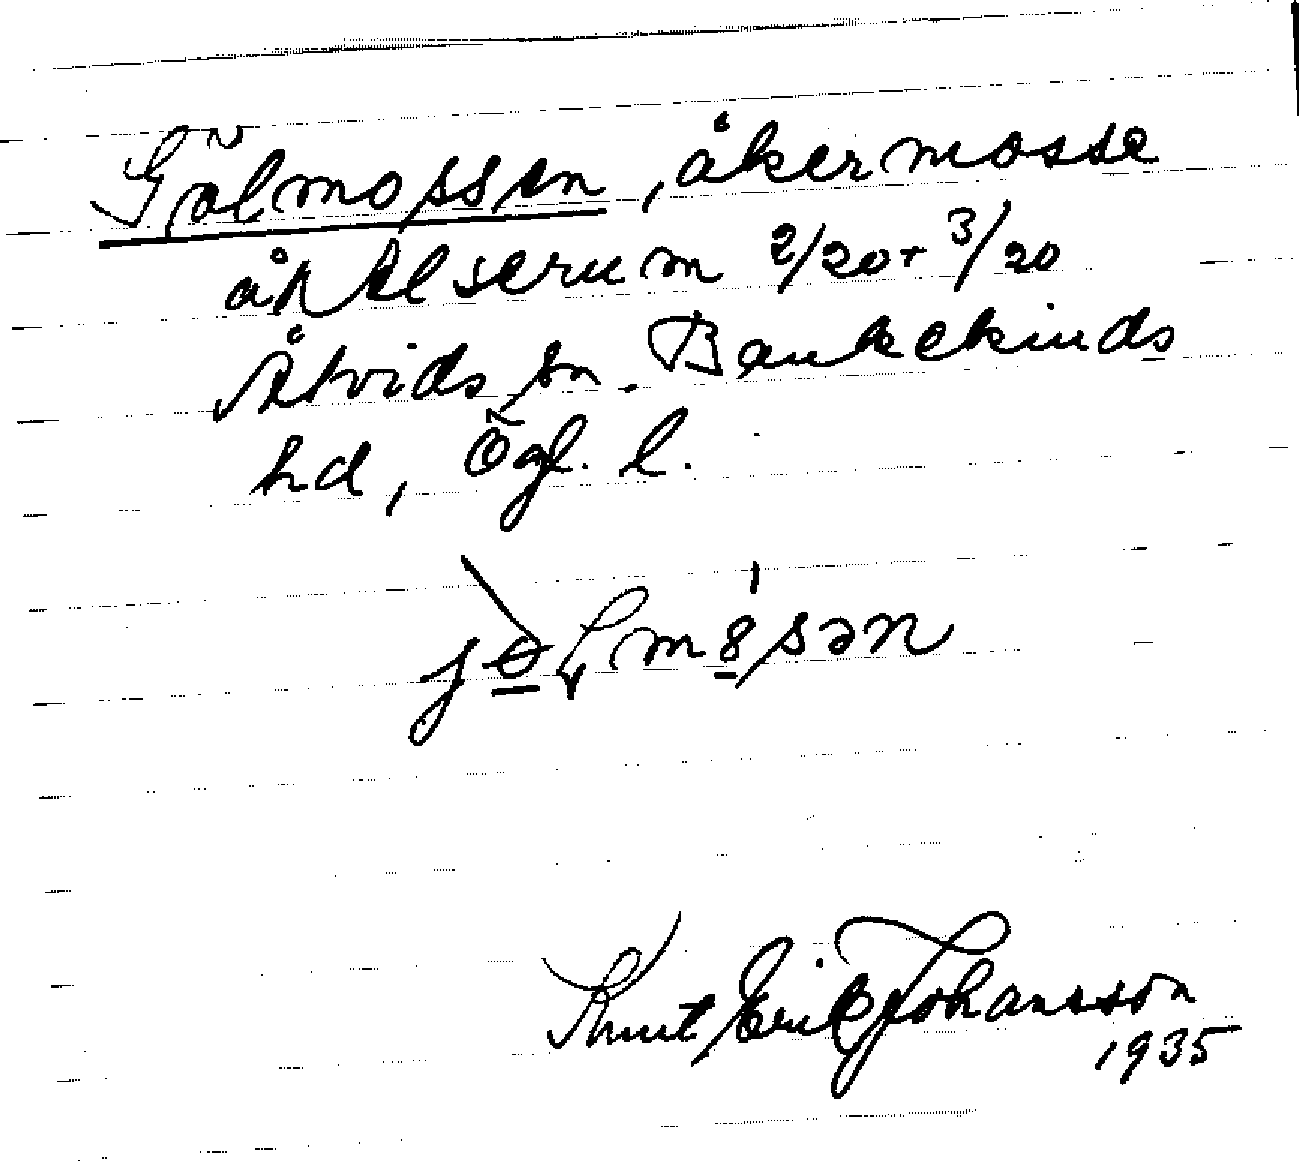 Gölmossen, åkermosse
å Kelserum 2/20 + 3/20
Åtvids sn. Bankekinds
hd, Ögl. l.
Knut Erik Johansson
1935